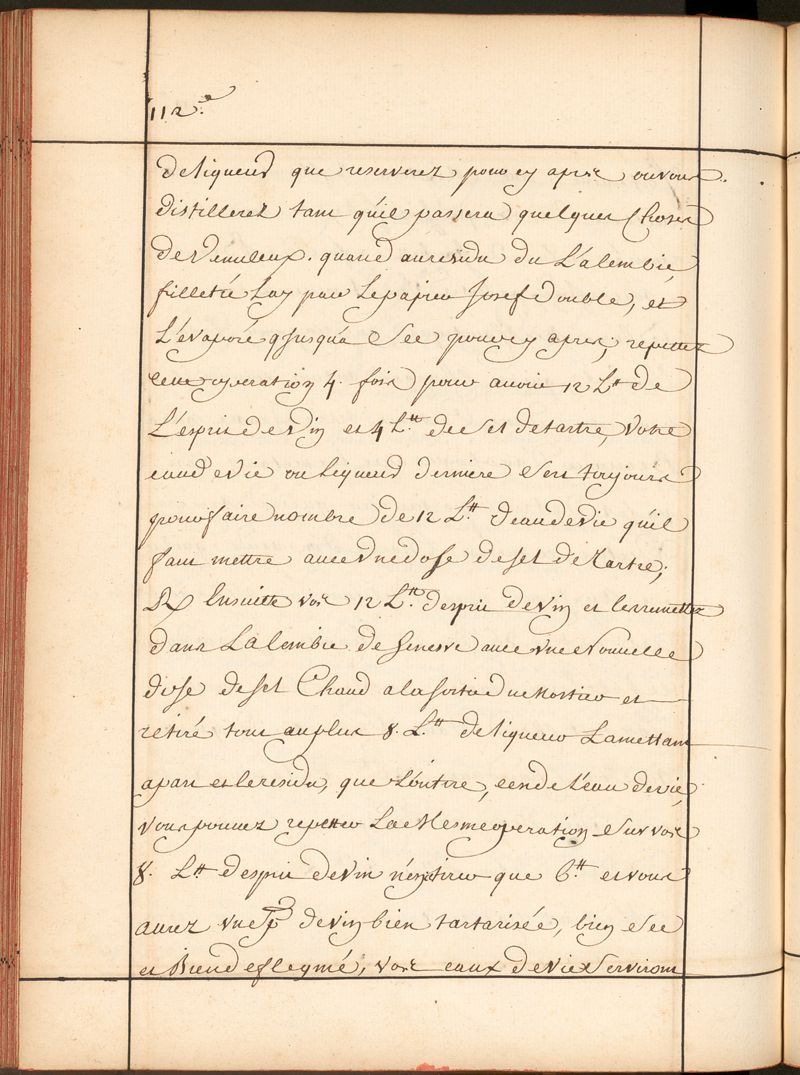 112.e
de liqueur que reserverez pour cy apres ou vous
distillerez tant quil passera quelques choses
de Venuleux. quand au residu du L'alembic,
filletré Lay par Le papier Josef double, et
L'evaporé jusqu'a See pour cy apres; repettez
cette operation 4. fois pour avoir 12 Ltt de
L'esprit de Vin et 4 Ltt. de Sel de tartre, votre
eaud evie ou Liqueur derniere Sert toujours
pour faire nombre de 12 Ltt. d'eau de Vie qu'il
faut mettre avec Une dose de sel de Tartre;
R Ensuitte vos 12 Ltt. d'esprit de vin et les remettez
dans Lalembic de senevre avec une Nouvelle
dose de sel Chaud a la sortie du Mortier et
retiré tout au plus 8. Ltt. de liqueur La mettant
apart et le residu, que L'on tire, rend de L'eau de vie,
vous pouvez repetter La Mesme operation Sur vos
8. Ltt. d'esprit de Vin n'en tirer que 6.tt et vous
aurez un de Vin bien tartarisée, bien See
et Bien deflegmé, vos eaux de Vie Serviront